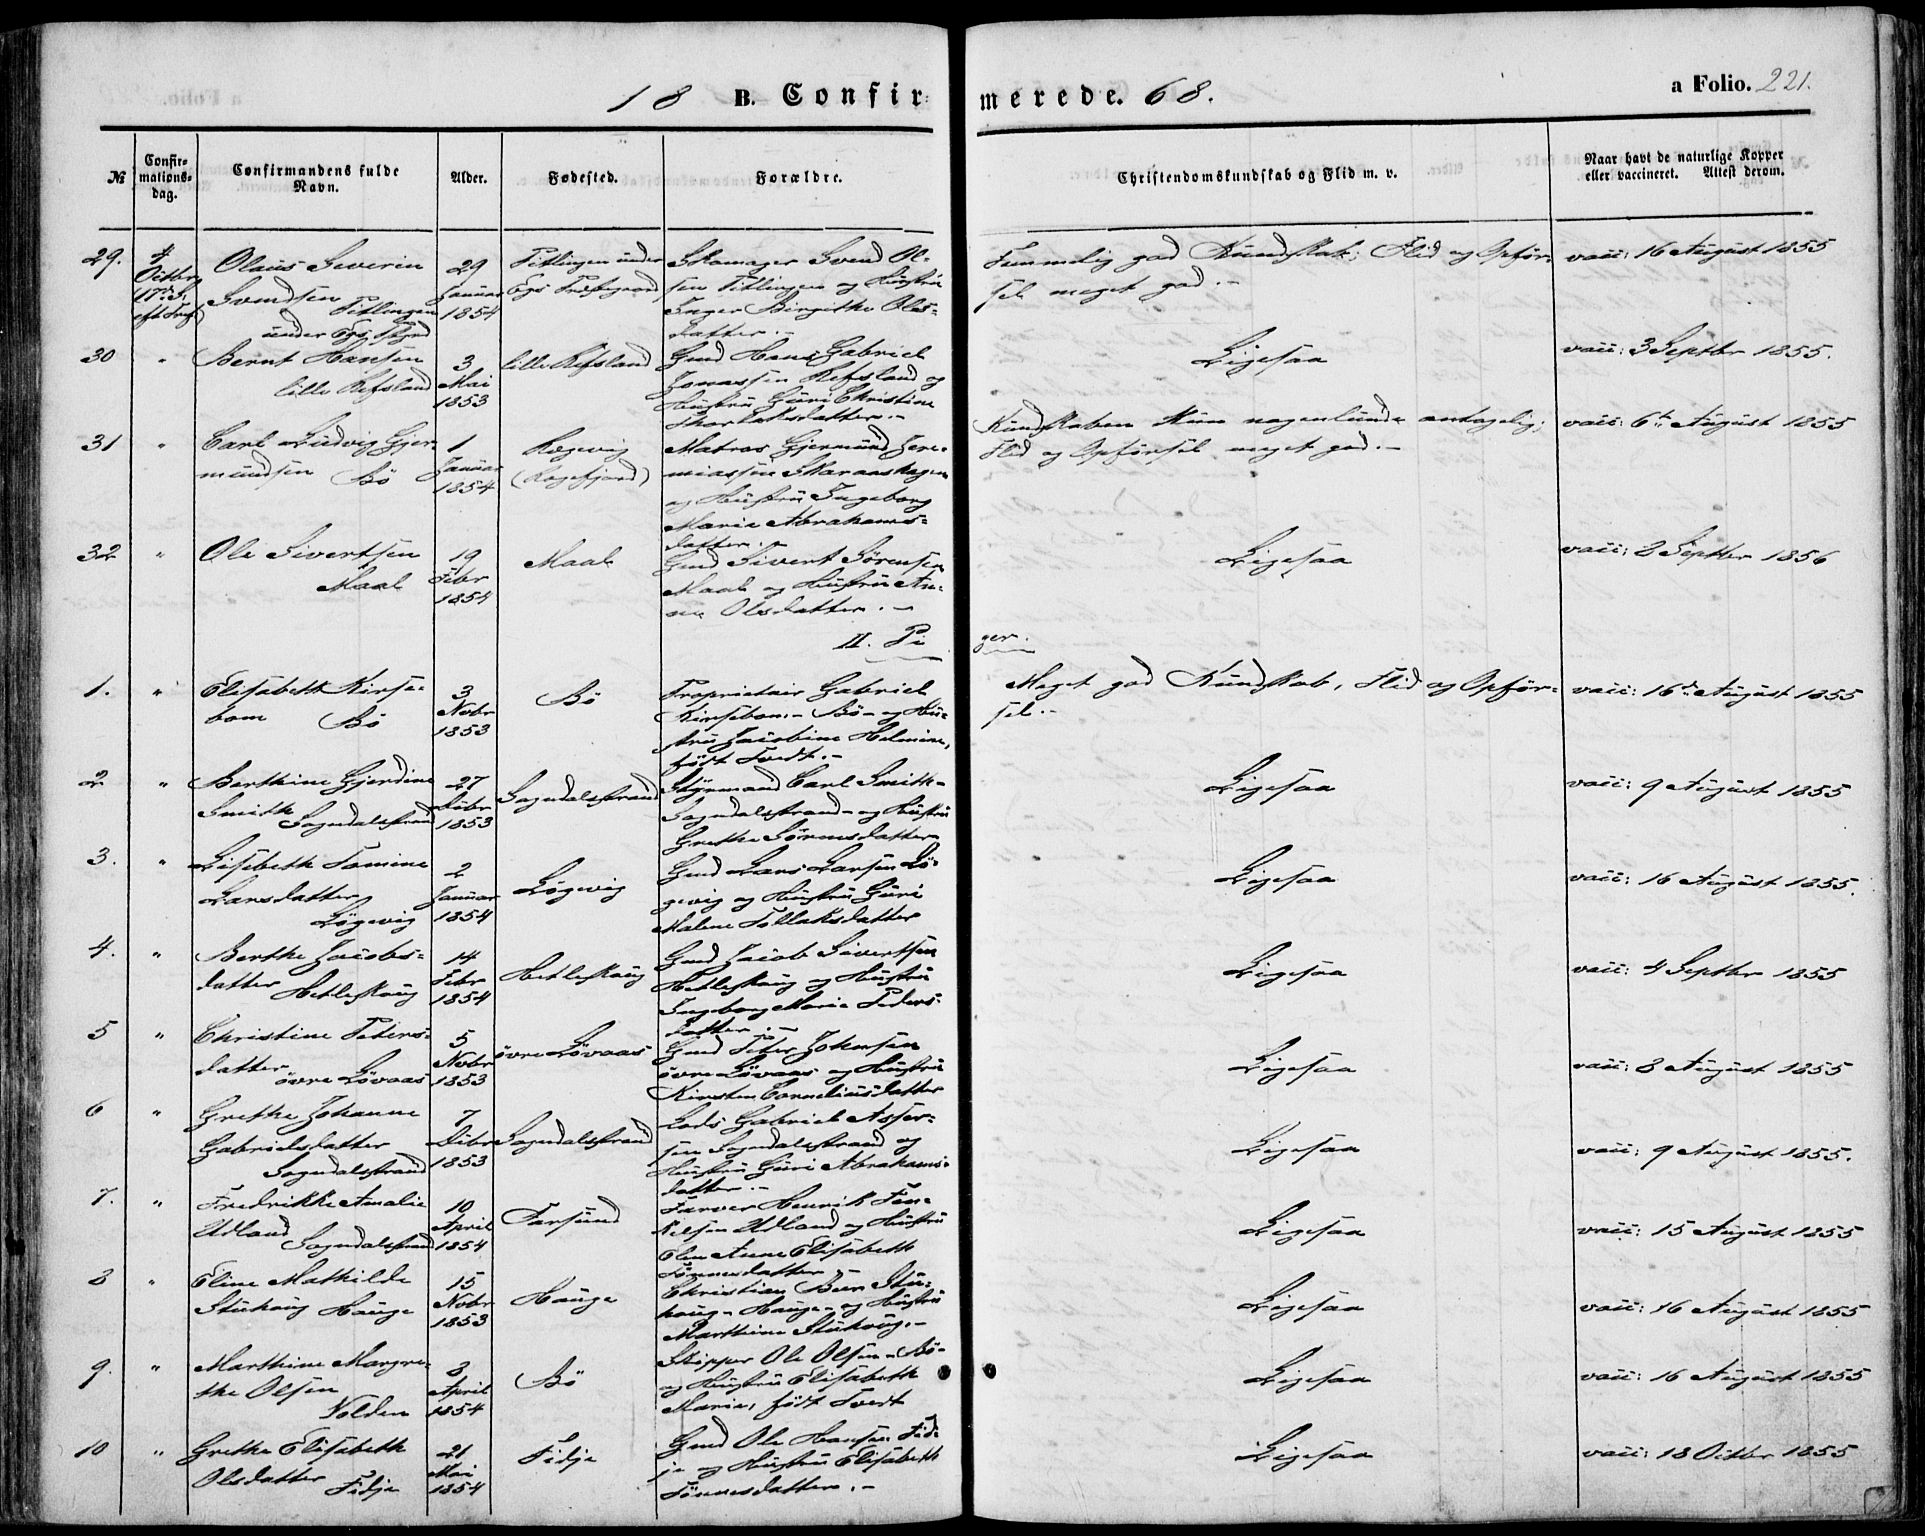 18 B. Confir=
merede. 68.
a Folio. 221.
№
Confir=
mations=
dag.
Confirmandens fulde
Navn.
Alder.
Fødested.
Forældre.
Christendomskundskab og Flid m. v.
Naar havt de naturlige Kopper
eller vaccineret. Attest derom.
29.
4
Octbr
17de S.
eft Tref
Olaus Severin
Svendsen
Titlingen
under Egs
29
Januar
1854
Titlingen under
Egs Præstegaard
Skomager Svend Ol-
sen Titlingen og Hustru
Inger Birgithe Ols=
datter.-
Temmelig god Kundskab; Flid og Opför-
sel meget god.-
vacc: 16 August 1855
30
"
Bernt Hansen
lille Refsland
3
Mai
1853
lille Refsland
Gmd Hans Gabriel
Jonassen Refsland og
Hustru Guri Christine
Thorlaksdatter.-
Ligesaa
vacc: 3 Septbr 1855.
31
"
Carl Ludvig Gjer-
mundsen Bö
1
Januar
1854
Rægevig
(Rægefjord)
Matros Gjermund Jere-
miassen Skaranshagen
og Hustru Ingeborg
Marie Abrahams=
datter.-
Kundskaben kun nogenlunde antagelig;
Flid og Opförsel meget god.-
vacc: 6te August 1855
32
"
Ole Sivertsen
Maal
19
Febr
1854
Maal
Gmd Sivert Sörensen
Maal og Hustru An-
ne Olsdatter.-
Ligesaa
vacc: 8 Septbr 1856
II. Pi
ger.
1.
"
Elisabeth Kirse-
bom Bö
3
Novbr
1853
Bö
Proprietair Gabriel
Kirsebom- Bö- og Hu-
stru Jacobine Helmine,
födt Tvedt.-
Meget god Kundskab, Flid og Opför-
sel.-
vacc: 16de August 1855
2
"
Berthine Gjerdine
Smith
Sogndalsstrand
27
Decbr
1853
Sogndalsstrand
Styrmand Carl Smith-
Sogndalsstrand- og Hustru
Grethe Sörensdatter
Ligesaa
vacc: 9 August 1855
3.
"
Lisebeth Tomine
Larsdatter
Lögevig
2
Januar
1854
Lögevig
Gmd Lars Larsen Lö-
gevig og Hustru Guri
Malene Tollaksdatter
Ligesaa
vacc: 16 August 1855.
4.
"
Berthe Jacobs-
datter Hetleskoug
14
Febr
1854
Hetleskoug
Gmd Jacob Sivertsen
Hetleskoug og Hustru
Ingeborg Marie Peders-
datter.-
Ligesaa
vacc: 4 Septbr 1855
5
"
Christine Peters-
datter
övre Lövaas
5
Novbr
1853
övre Lövaas
Gmd Peter Johnsen
övre Lövaas og Hustru
Kirsten Corneliusdatter
Ligesaa
vacc: 8 August 1855
6
"
Grethe Johanne
Gabrielsdatter
Sogndalsstrand
7
Decbr
1853
Sogndalsstrand
Lods Gabriel Asser-
sen Sogndalsstrand og
Hustru Guri Abrahams-
datter.-
Ligesaa
vacc: 9 August 1855.
7.
"
Fredrikke Amalie
Udland
Sogndalsstrand
10
April
1854
Farsund
Farver Henrik Ten-
nelsen Udland og Hustru
Elen Anne Elisabeth
Tönnesdatter
Ligesaa
vacc: 15 August 1855
8
"
Eline Mathilde
Stuhoug Hauge
15
Novbr
1853
Hauge
Christian Beer Stu-
houg- Hauge- og Hustru
Marthine Stuhoug.-
Ligesaa
vacc: 16 August 1855
9.
"
Marthine Margre-
the Olsen
Volden
8
April
1854
Bö
Skipper Ole Olsen- Bö-
og Hustru Elisabeth
Marie, födt Tvedt
Ligesaa
vacc: 16 August 1855
10
"
Grethe Elisabeth
Olsdatter Fidje
21
Mai
1854
Fidje
Gmd Ole Hansen Fid-
je og Hustru Elisabeth
Tönnesdatter.-
Ligesaa
vacc: 18 Octbr 1855